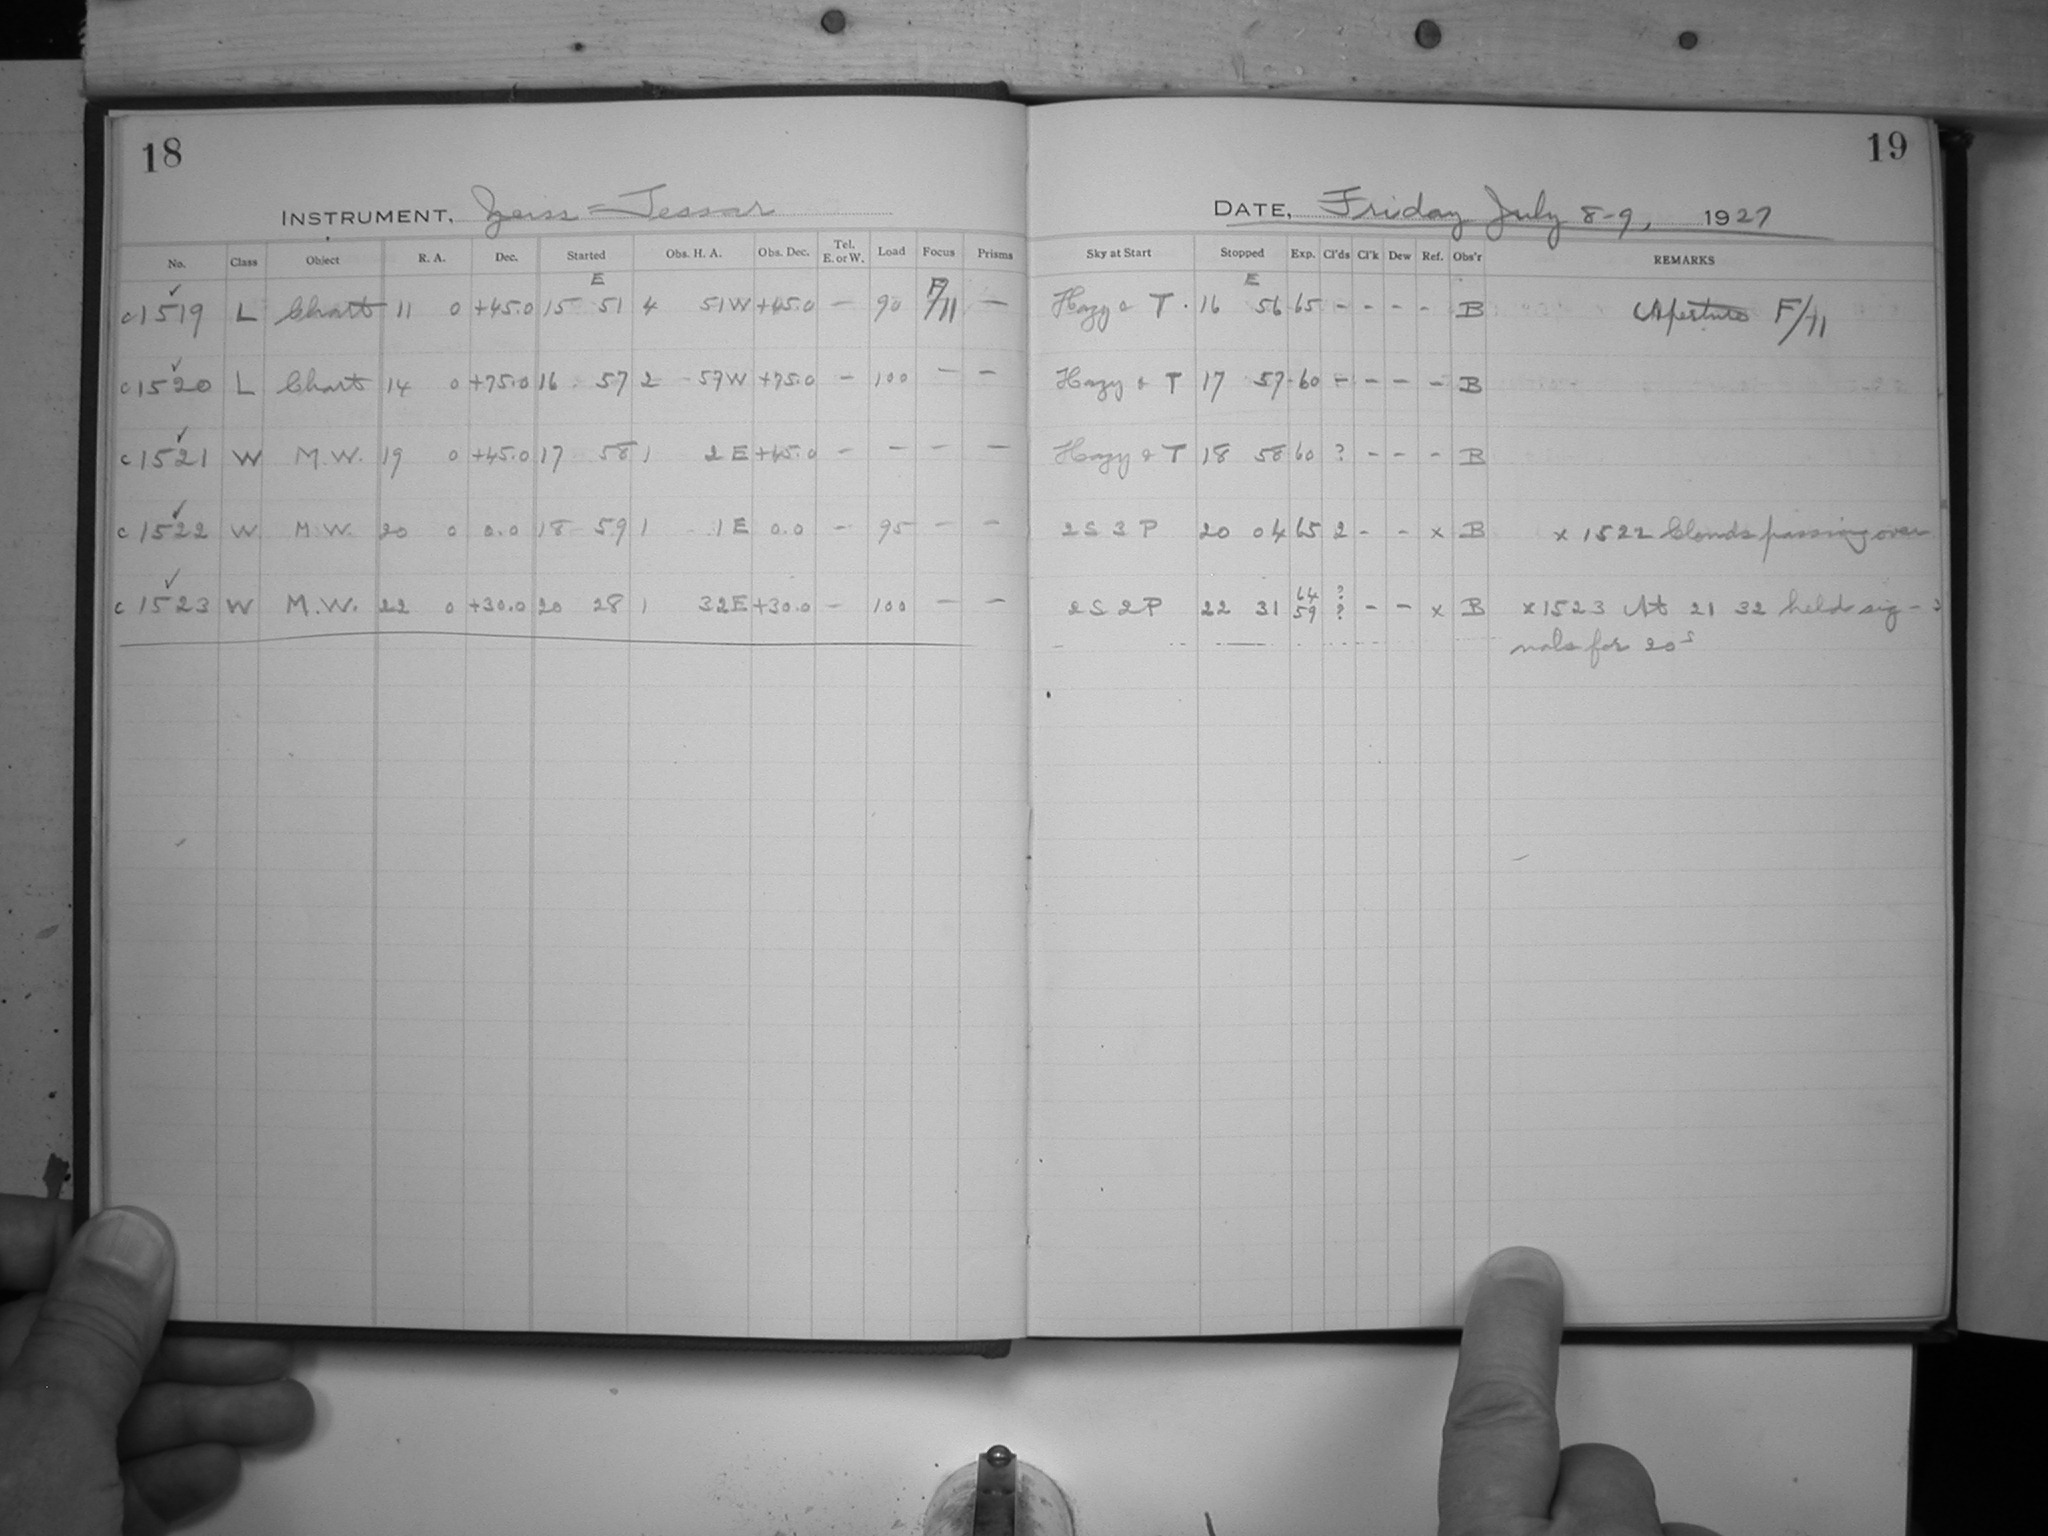 18
19
INSTRUMENT, Zeiss-Tessar
DATE, Friday July 8-9, 1927
No. Class Object R. A. Dec. Started Obs. H. A. Obs. Dec. Tel. E. or W. Load Focus Prisms Sky at Start Stopped Exp. Cl'ds Cl'k Dew Ref. Obs'r REMARKS
E E
c1519 ✓ L Chart 11 0 +45.0 15 51 4 51W +45.0 - 90 F/11 - Hazy & T. 16 56 65 - - - - B Aperture F/11
c1520 ✓ L Chart 14 0 +75.0 16 57 2 57W +75.0 - 100 - - Hazy & T 17 57 60 - - - - B
c1521 ✓ W M.W. 19 0 +45.0 17 58 1 2E +45.0 - - - - Hazy & T 18 58 60 ? - - - B
c1522 ✓ W M.W. 20 0 0.0 18 59 1 1E 0.0 - 95 - - 2S 3P 20 04 65 2 - - x B x 1522 Clouds passing over
c1523 ✓ W M.W. 22 0 +30.0 20 28 1 32E +30.0 - 100 - - 2S 2P 22 31 64 59 ? ? - - x B x1523 At 21 32 held sig-
nals for 20s